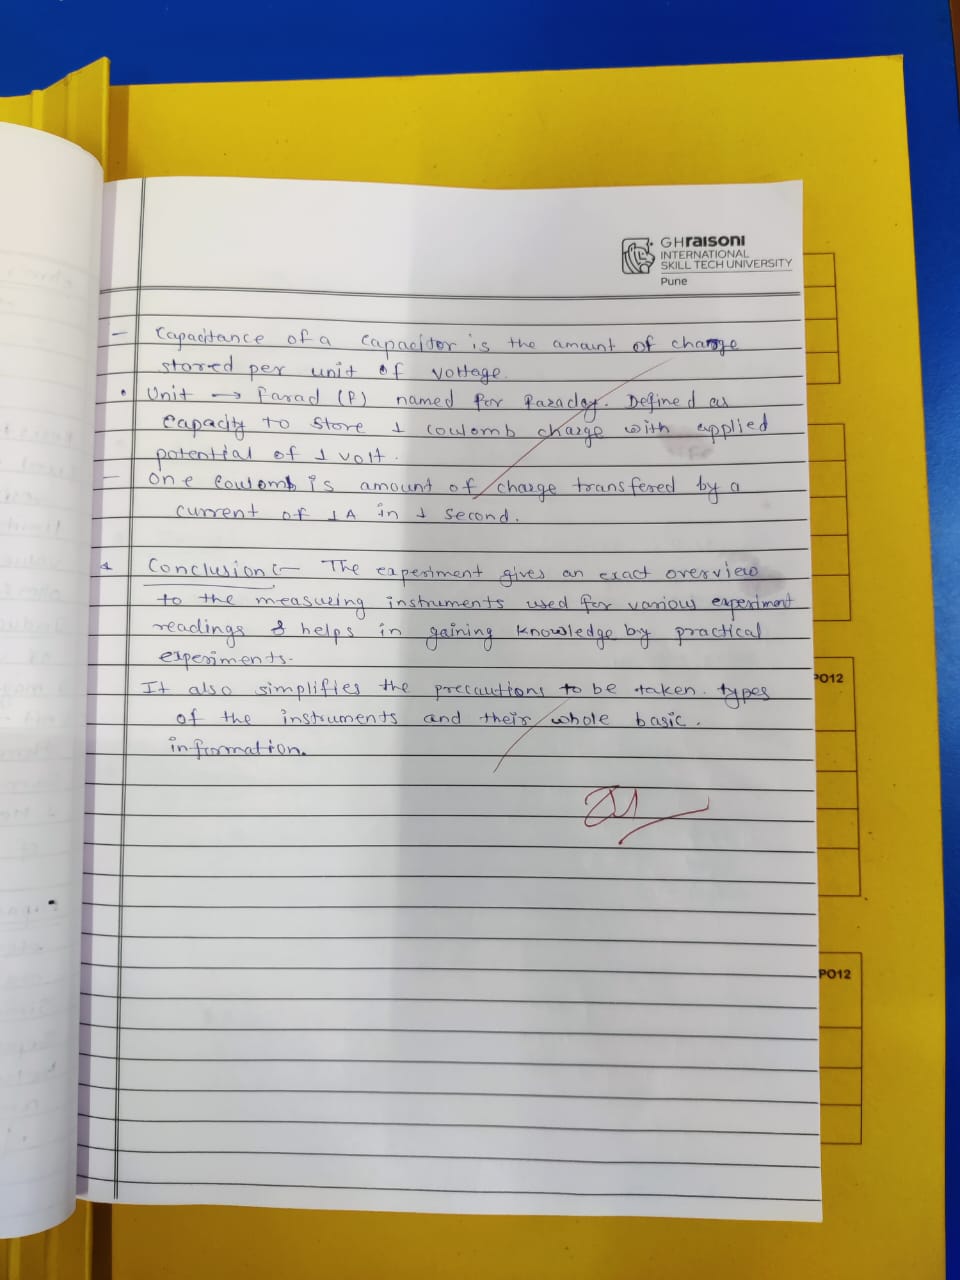 GHraisoni
INTERNATIONAL
SKILL TECH UNIVERSITY
Pune
– Capacitance of a capacitor is the amount of charge
stored per unit of voltage.
• Unit → Farad (F) named for Faraday. Defined as
capacity to store 1 coulomb charge with applied
potential of 1 volt.
– One Coulomb is amount of charge transfered by a
current of 1A in 1 second.
Conclusion :– The experiment gives an exact overview
to the measuring instruments used for various experiment
readings & helps in gaining knowledge by practical
experiments.
It also simplifies the precautions to be taken. types
of the instruments and their whole basic.
information.
PO12
PO12